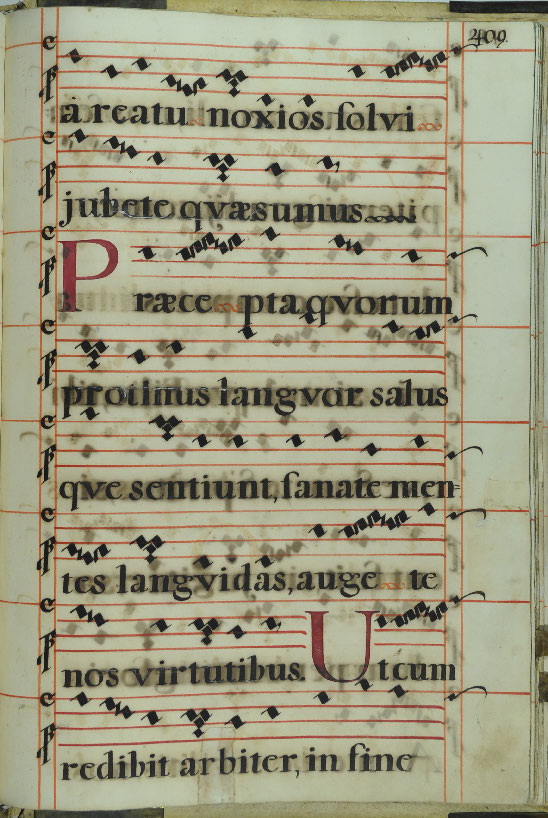 409.
à reatu noxios solvi
jubete qvæsumus.
Præce pta qvorum
protinus langvor salus
qve sentiunt, sanate men=
tes langvidas, auge te
nos virtutibus. Ut cum
redibit arbiter, in fine